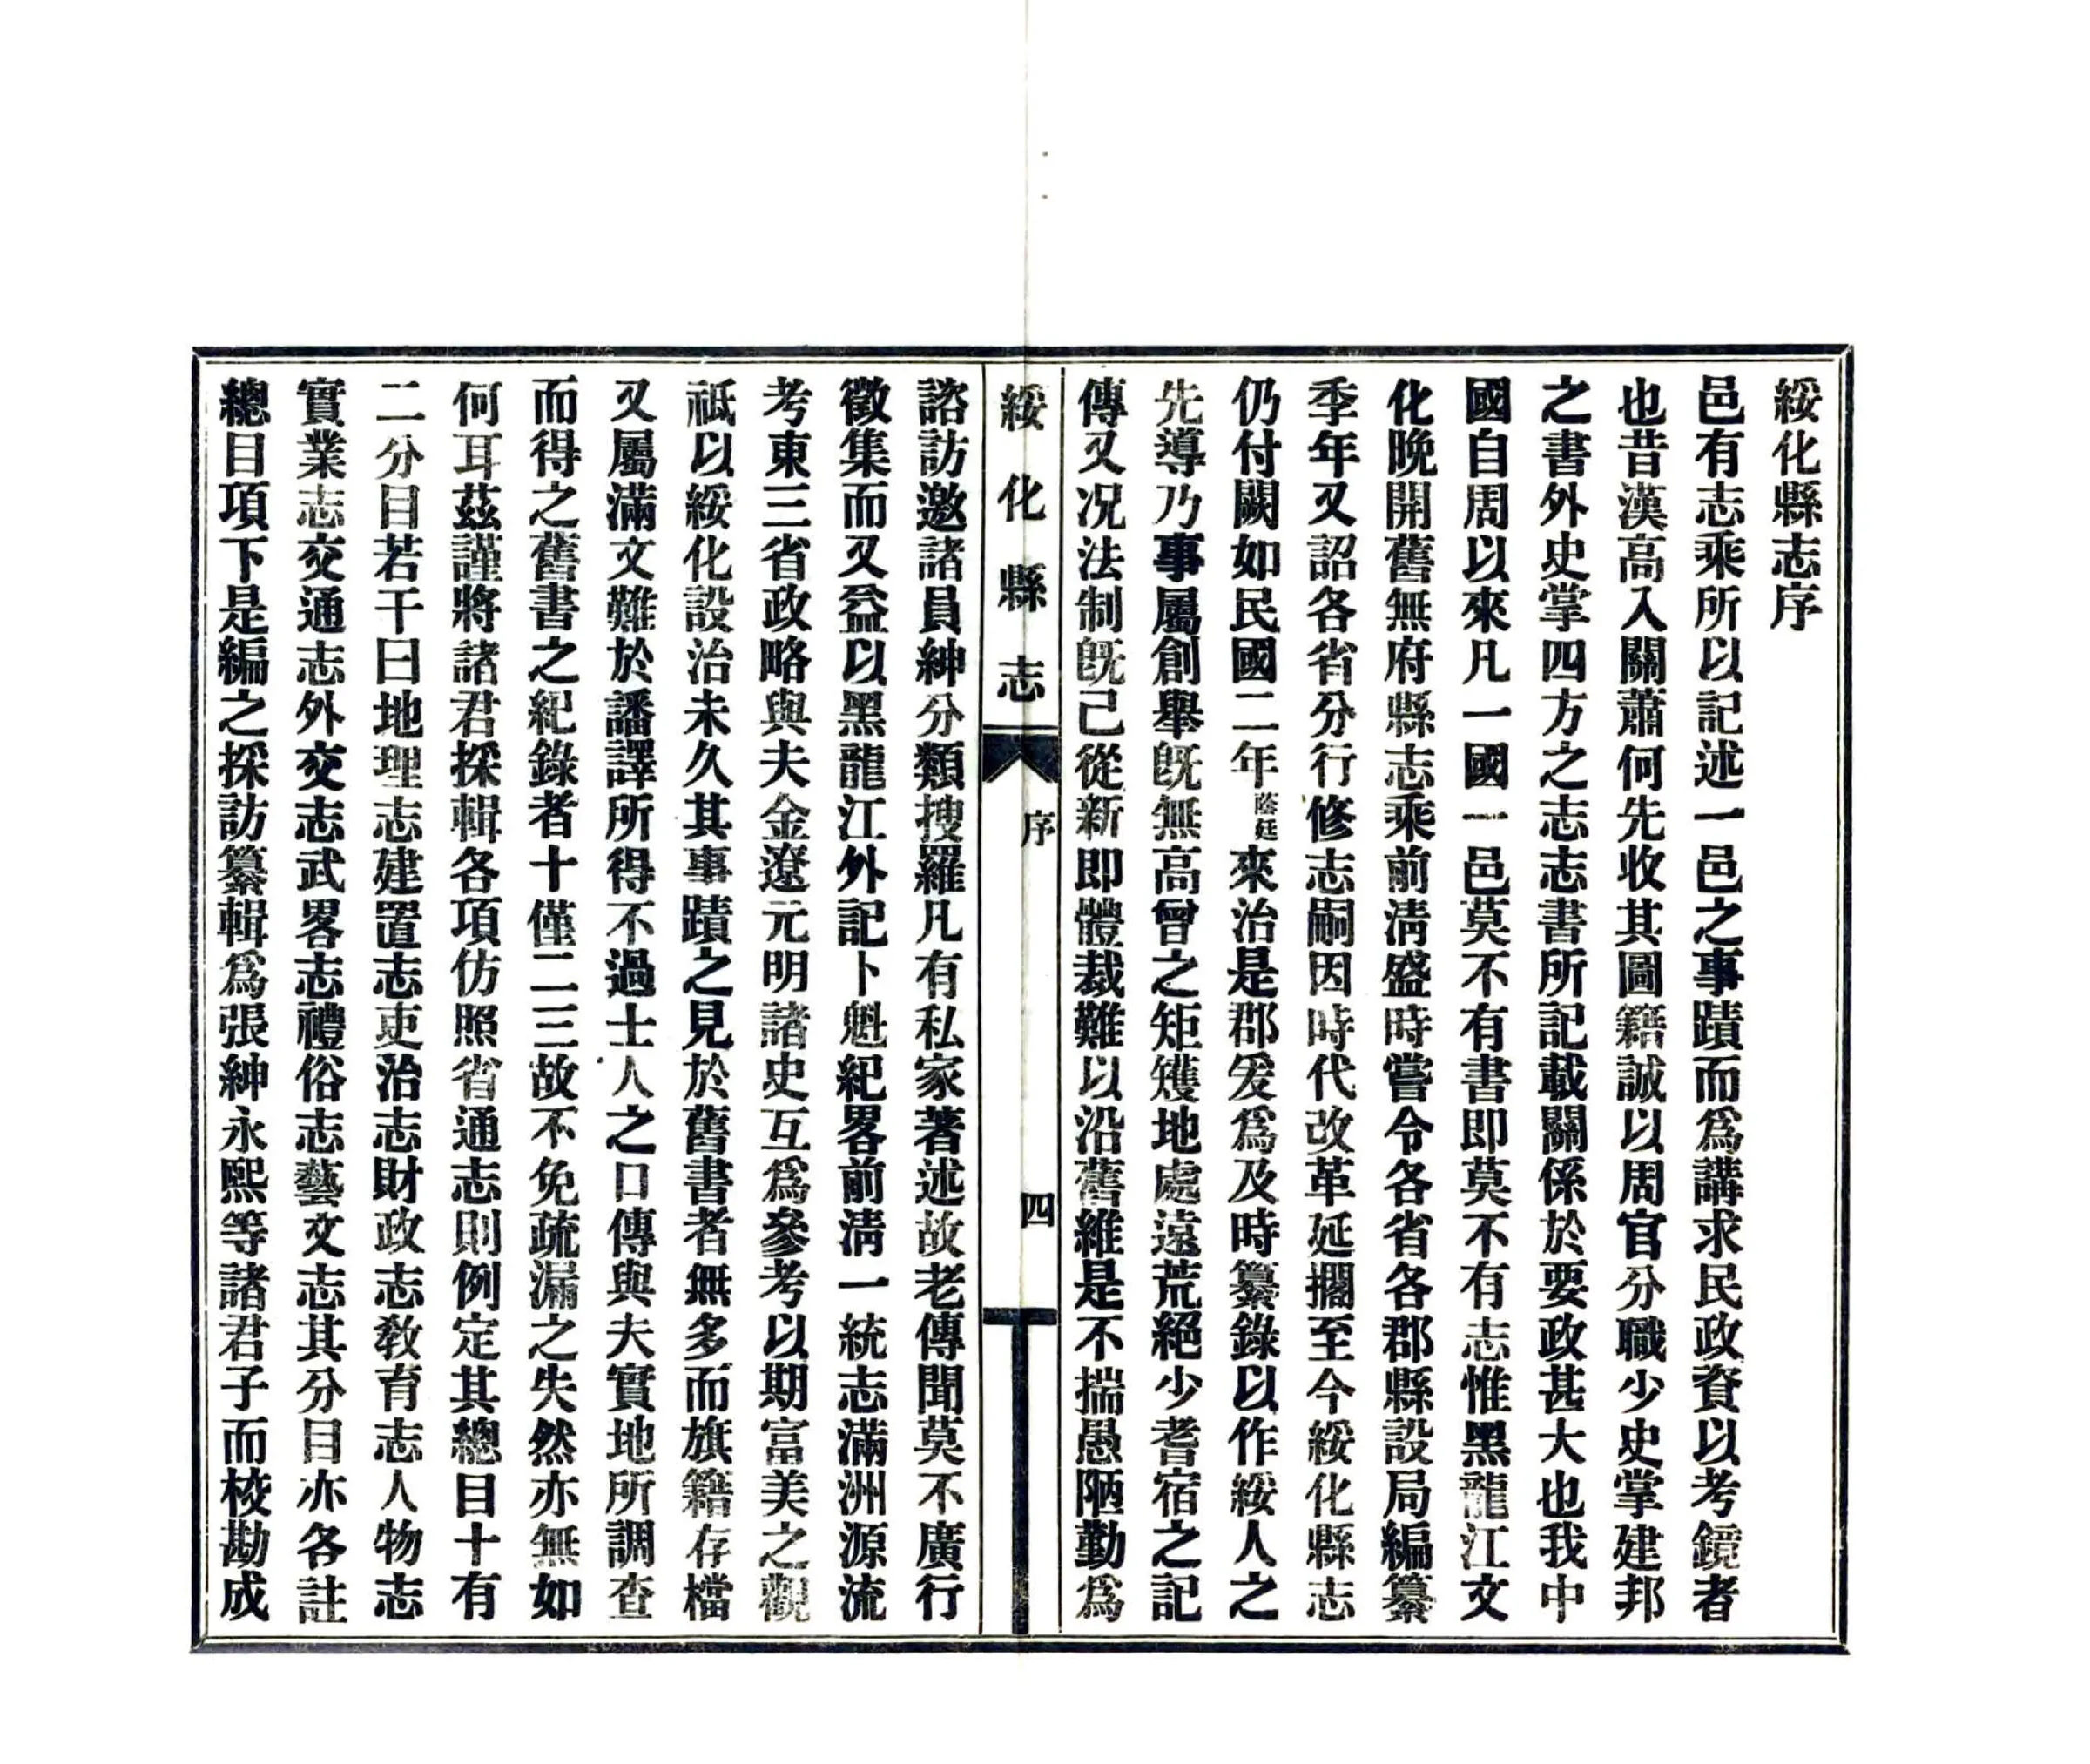 綏化縣志序
邑有志乘所以記述一邑之事蹟而爲講求民政資以考鏡者
也昔漢高入關蕭何先收其圖籍誠以周官分職少史掌建邦
之書外史掌四方之志志書所記載關係於要政甚大也我中
國自周以來凡一國一邑莫不有書即莫不有志惟黑龍江文
化晚開舊無府縣志乘前淸盛時嘗令各省各郡縣設局編纂
季年又詔各省分行修志嗣因時代改革延擱至今綏化縣志
仍付闕如民國二年蔭廷來治是郡爰爲及時纂錄以作綏人之
先導乃事屬創舉旣無高曾之矩矱地處遠荒絕少耆宿之記
傳又况法制旣己從新即體裁難以沿舊維是不揣愚陋勤爲
綏化縣志
序
四
諮訪邀諸員紳分類搜羅凡有私家著述故老傳聞莫不廣行
徵集而又益以黑龍江外記卜魁紀畧前淸一統志滿洲源流
考東三省政略與夫金遼元明諸史互爲參考以期富美之觀
祗以綏化設治未久其事蹟之見於舊書者無多而旗籍存檔
又屬滿文難於譒譯所得不過士人之口傳與夫實地所調查
而得之舊書之紀錄者十僅二三故不免疏漏之失然亦無如
何耳茲謹將諸君採輯各項仿照省通志則例定其總目十有
二分目若干曰地理志建置志吏治志財政志敎育志人物志
實業志交通志外交志武畧志禮俗志藝文志其分目亦各註
總目項下是編之採訪纂輯爲張紳永熙等諸君子而校勘成